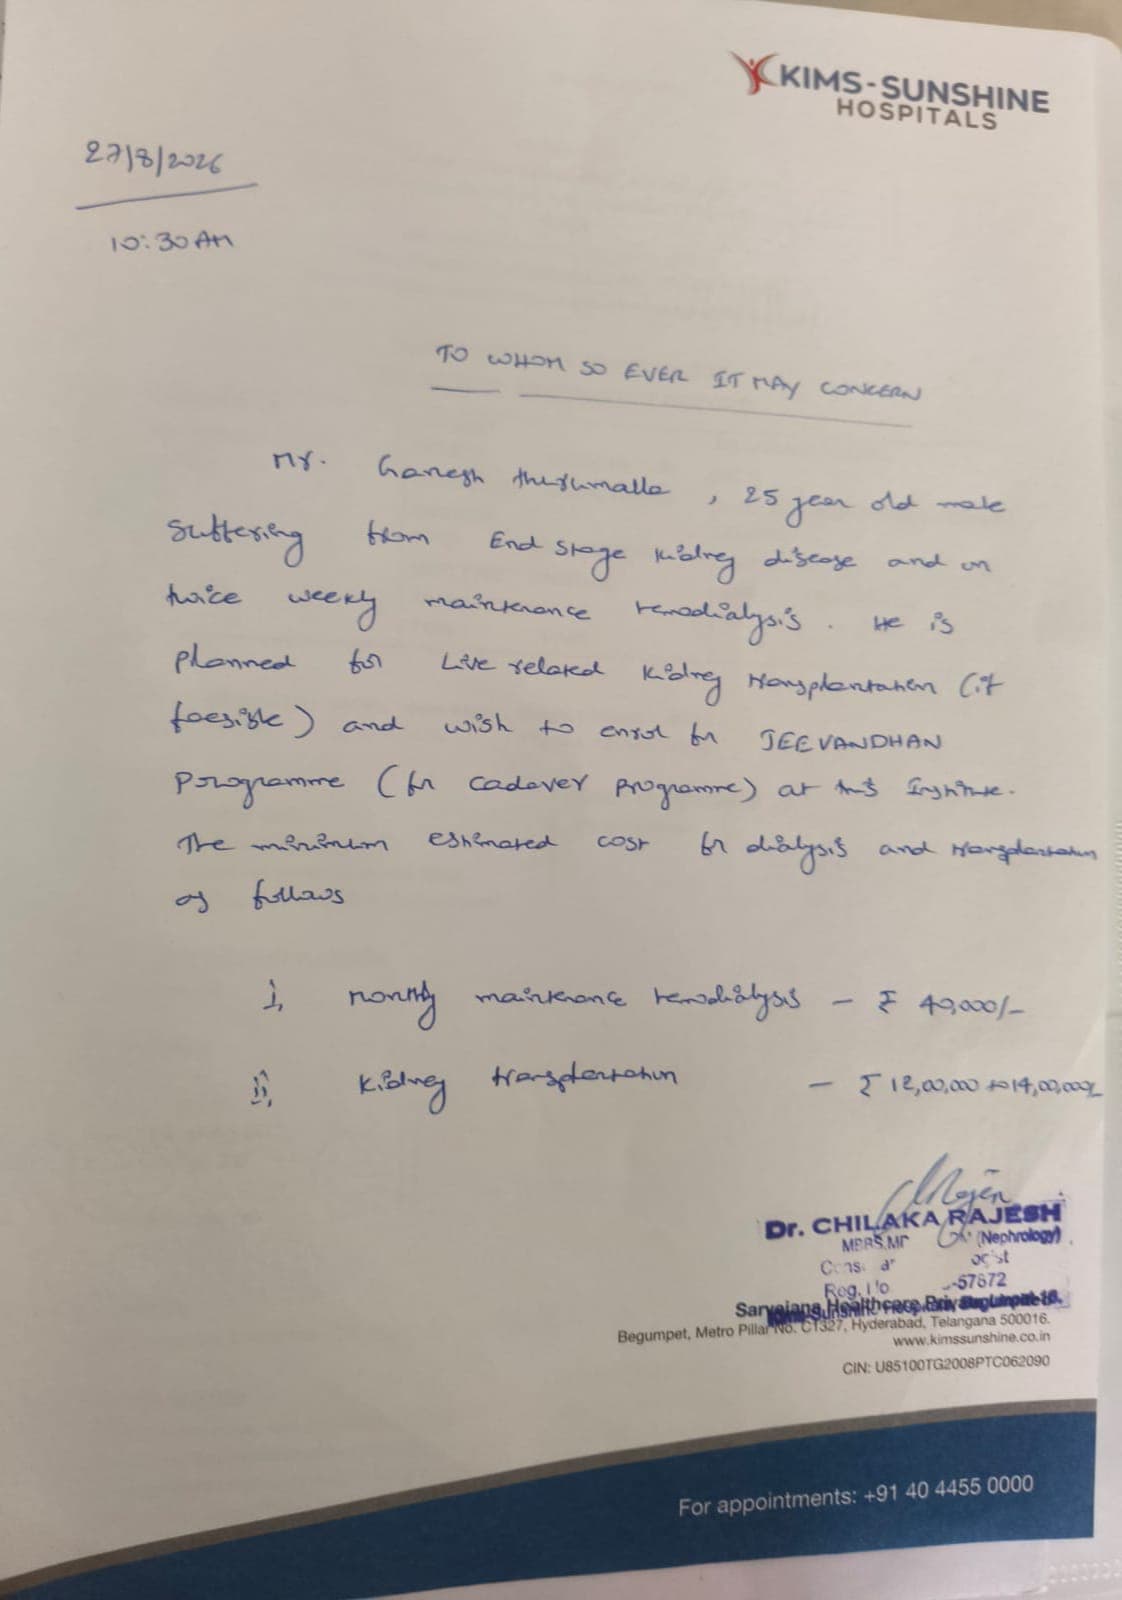 KIMS-SUNSHINE
HOSPITALS
27/8/2026
10:30 AM
TO WHOM SO EVER IT MAY CONCERN
Mr. Ganesh Thirumalla, 25 year old male
suffering from End stage kidney disease and on
twice weekly maintenance hemodialysis. He is
planned for Live related kidney transplantation (if
feasible) and wish to enrol for JEEVANDHAN
programme (for cadaver programme) at this Institute.
The minimum estimated cost for dialysis and transplantation
as follows
i, Monthly maintenance hemodialysis - ₹ 40,000/-
ii, Kidney transplantation - ₹ 12,00,000 to 14,00,000/-
Dr. CHILAKA RAJESH
MBBS,MD (Nephrology)
Reg. No -57672
Sarvejana Healthcare Private Limited
Begumpet, Metro Pillar No. C1327, Hyderabad, Telangana 500016.
www.kimssunshine.co.in
CIN: U85100TG2008PTC062090
For appointments: +91 40 4455 0000